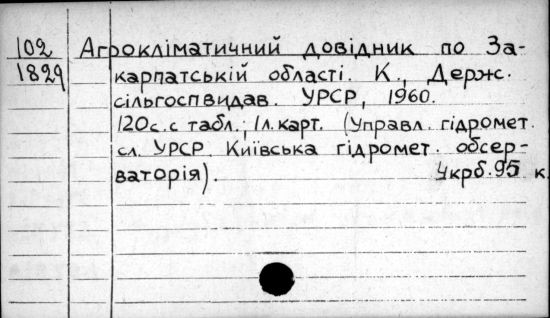 102 Агрокліматичний довідник по За-
1829 карпатській області. К., Держ.
сільгоспвидав. УРСР, 1960.
120с. с табл.; 1л. карт. (Управл. гідромет.
сл. УРСР. Київська гідромет. обсер-
ваторія). Укрб. 95 к